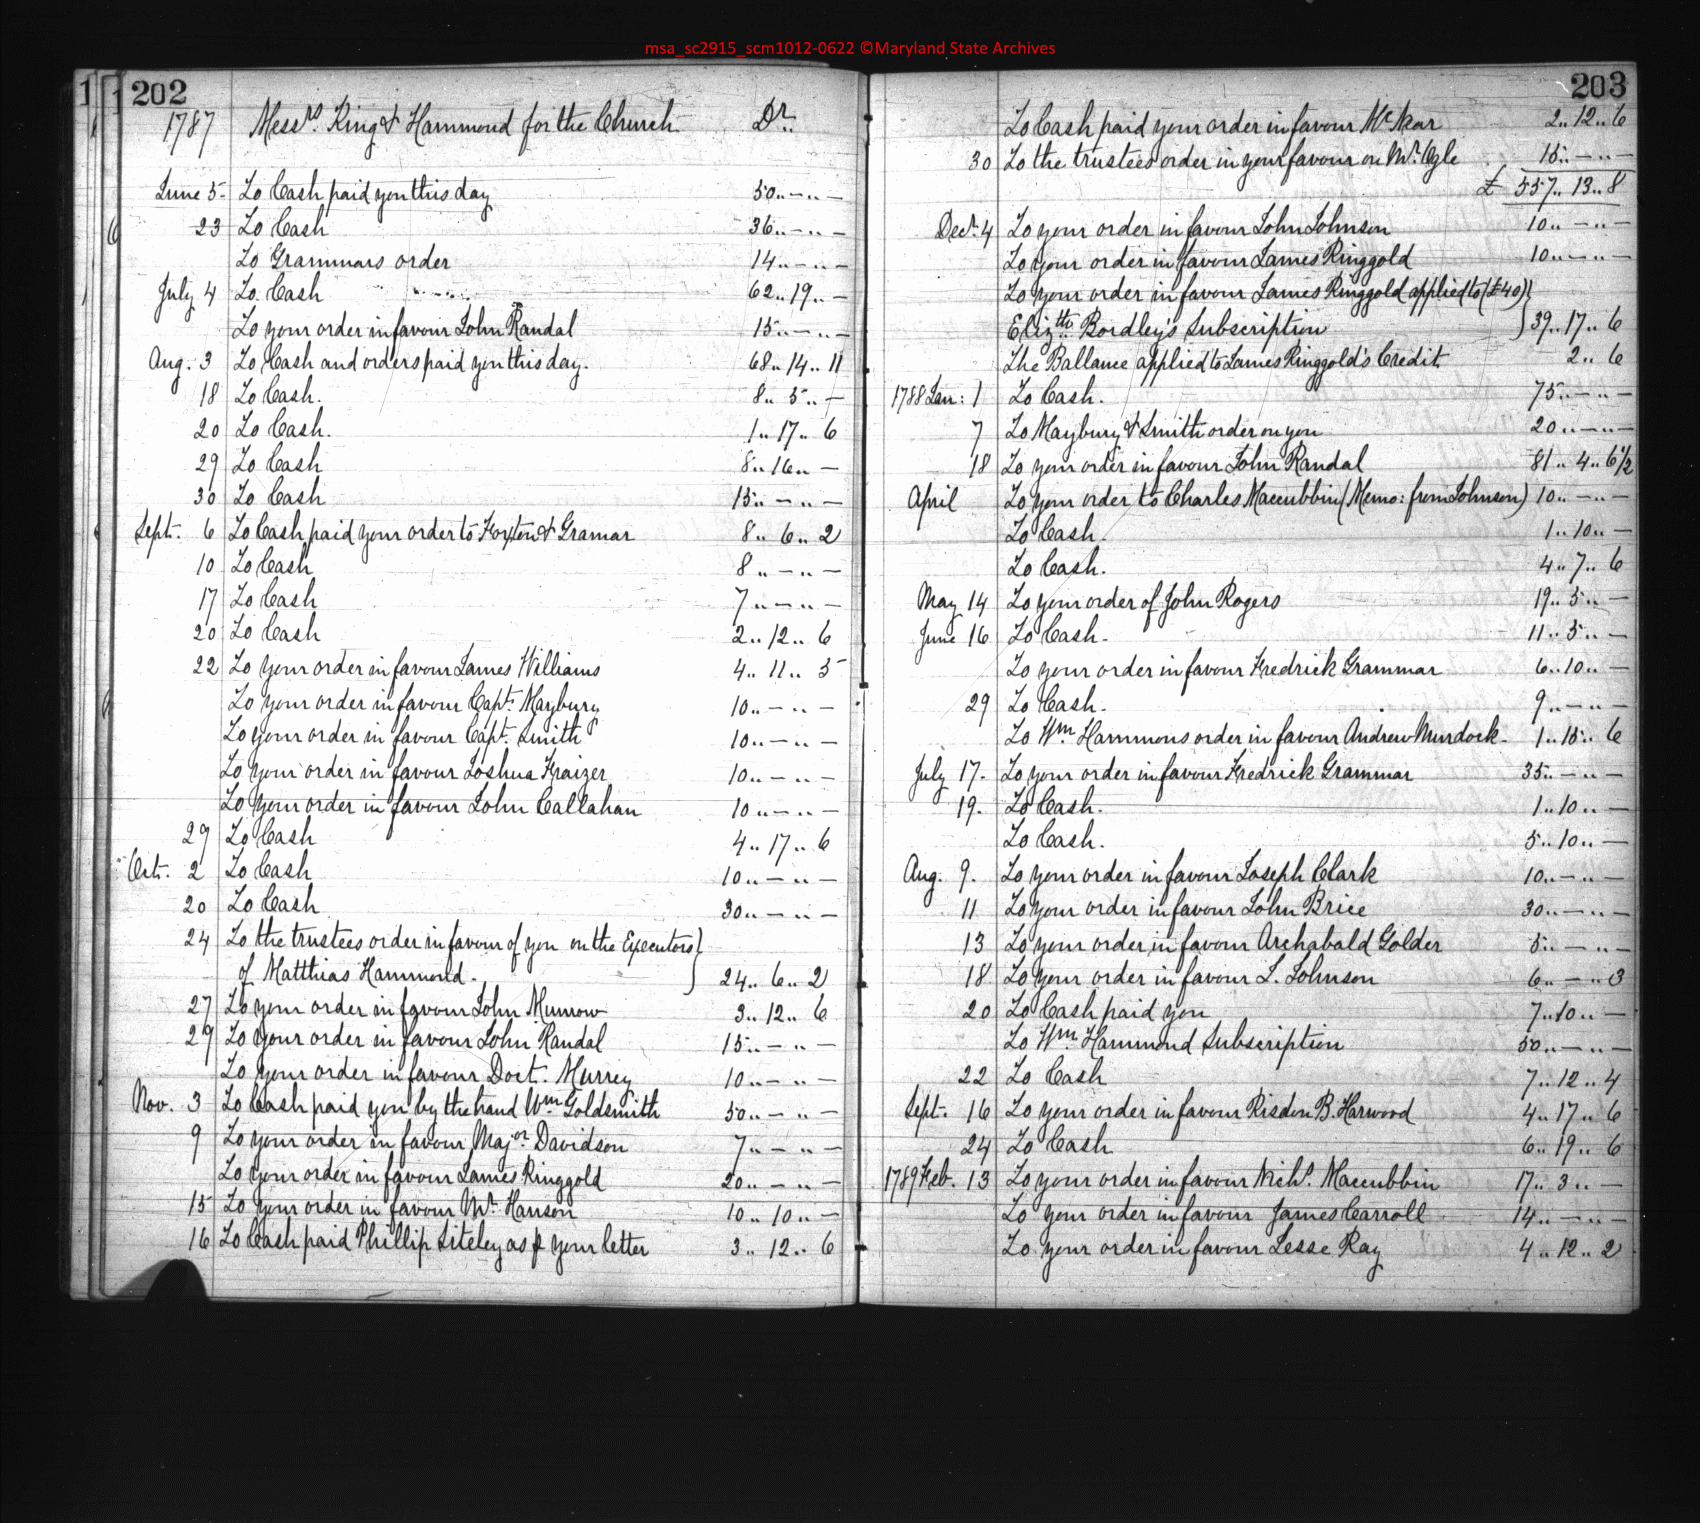 msa_sc2915_scm1012-0622 ©Maryland State Archives
202
1787 Messrs. King & Hammond for the Church Dr.
June 5 To Cash paid you this day 50..—..—
23 To Cash 36..—..—
To Grammars order 14..—..—
July 4 To Cash 62..19..—
To your order in favour John Randal 15..—..—
Aug. 3 To Cash and orders paid you this day. 68..14..11
18 To Cash. 8..5..—
20 To Cash. 1..17..6
29 To Cash 8..16..—
30 To Cash 15..—..—
Sept. 6 To Cash paid your order to Foxton & Gramar 8..6..2
10 To Cash 8..—..—
17 To Cash 7..—..—
20 To Cash 2..12..6
22 To your order in favour James Williams 4..11..5
To your order in favour Capt. Maybury 10..—..—
To your order in favour Capt. Smith 10..—..—
To your order in favour Joshua Fraizer 10..—..—
To your order in favour John Callahan 10..—..—
29 To Cash 4..17..6
Oct. 2 To Cash 10..—..—
20 To Cash 30..—..—
24 To the trustees order in favour of you on the Executors }
of Matthias Hammond. } 24..6..2
27 To your order in favour John Munrow 3..12..6
29 To your order in favour John Randal 15..—..—
To your order in favour Doct. Murrey 10..—..—
Nov. 3 To Cash paid you by the hand Wm Goldsmith 50..—..—
9 To your order in favour Major Davidson 7..—..—
To your order in favour James Ringgold 20..—..—
15 To your order in favour Mr. Hanson 10..10..—
16 To Cash paid Phillip Liteley as p your letter 3..12..6
203
To Cash paid your order in favour 2..12..6
30 To the trustees order in your favour on Mr. Ogle 15..—..—
£ 557..13..8
Decr. 4 To your order in favour John Johnson 10..—..—
To your order in favour James Ringgold 10..—..—
To your order in favour James Ringgold applied to (£40) }
Elizth. Bordley's Subscription } 39..17..6
The Ballance applied to James Ringgold's Credit. 2..6
1788 Jan: 1 To Cash. 75..—..—
7 To Maybury & Smith order on you 20..—..—
18 To your order in favour John Randal 81..4..6½
April To your order to Charles Maccubbin (Memo: from Johnson) 10..—..—
To Cash. 1..10..—
To Cash. 4..7..6
May 14 To your order of John Rogers 19..5..—
June 16 To Cash. 11..5..—
To your order in favour Fredrick Grammar 6..10..—
29 To Cash. 9..—..—
To Wm. Hammons order in favour Andrew Murdock. 1..15..6
July 17. To your order in favour Fredrick Grammar 35..—..—
19. To Cash. 1..10..—
To Cash. 5..10..—
Aug. 9. To your order in favour Joseph Clark 10..—..—
11 To your order in favour John Brice 30..—..—
13 To your order in favour Archabald Golder 5..—..—
18 To your order in favour J. Johnson 6..—..3
20 To Cash paid you 7..10..—
To Wm. Hammond Subscription 50..—..—
22 To Cash 7..12..4
Sept. 16 To your order in favour Risdon B. Harwood 4..17..6
24 To Cash 6..19..6
1789 Feb. 13 To your order in favour Nichs. Maccubbin 17..3..—
To your order in favour James Carroll 14..—..—
To your order in favour Jesse Ray 4..12..2